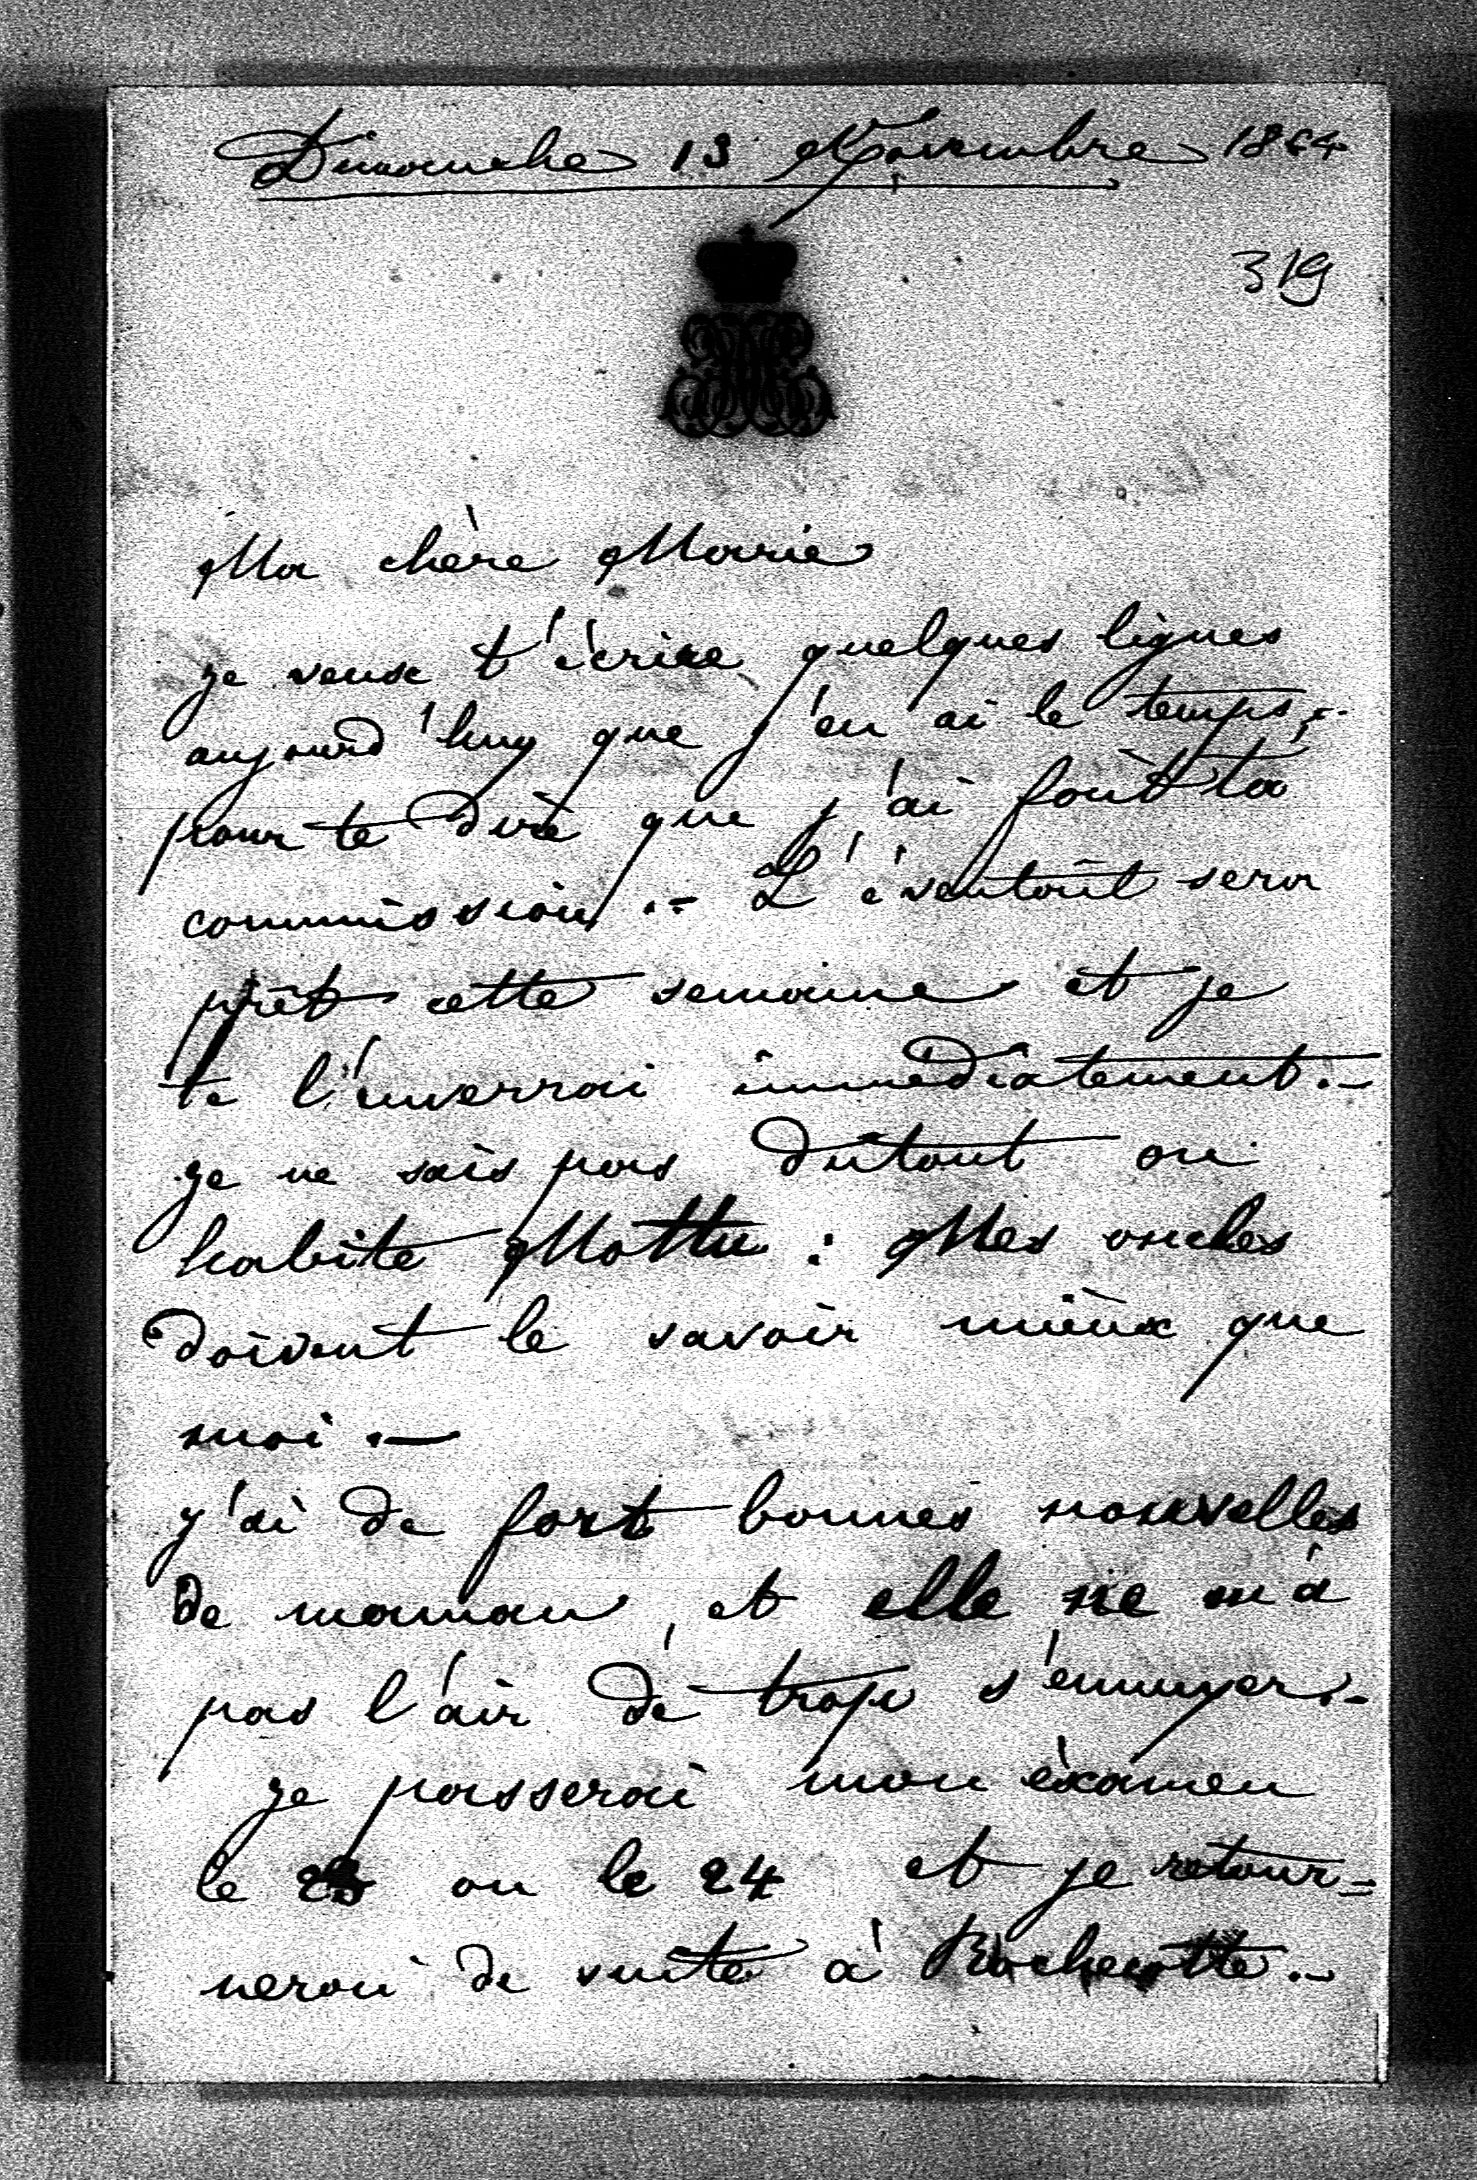 Dimanche 13 Novembre 1864
319
Ma chère Marie
je veux t'écrire quelques lignes
aujourd'huy que j'en ai le temps,-
pour te dire que j'ai fait ta
commission .- L'éventail sera
prêt cette semaine et je
te l'enverrai immédiatement.-
je ne sais pas dutout ou
habite Mattu : Mes oncles
doivent le savoir mieux que
moi .-
j'ai de fort bonnes nouvelles
de maman, et elle ne m'a
pas l'air de trop s'ennuyer.-
je passerai mon éxamen
le 23 ou le 24 et je retour=
nerai de suite à Rochecotte.-